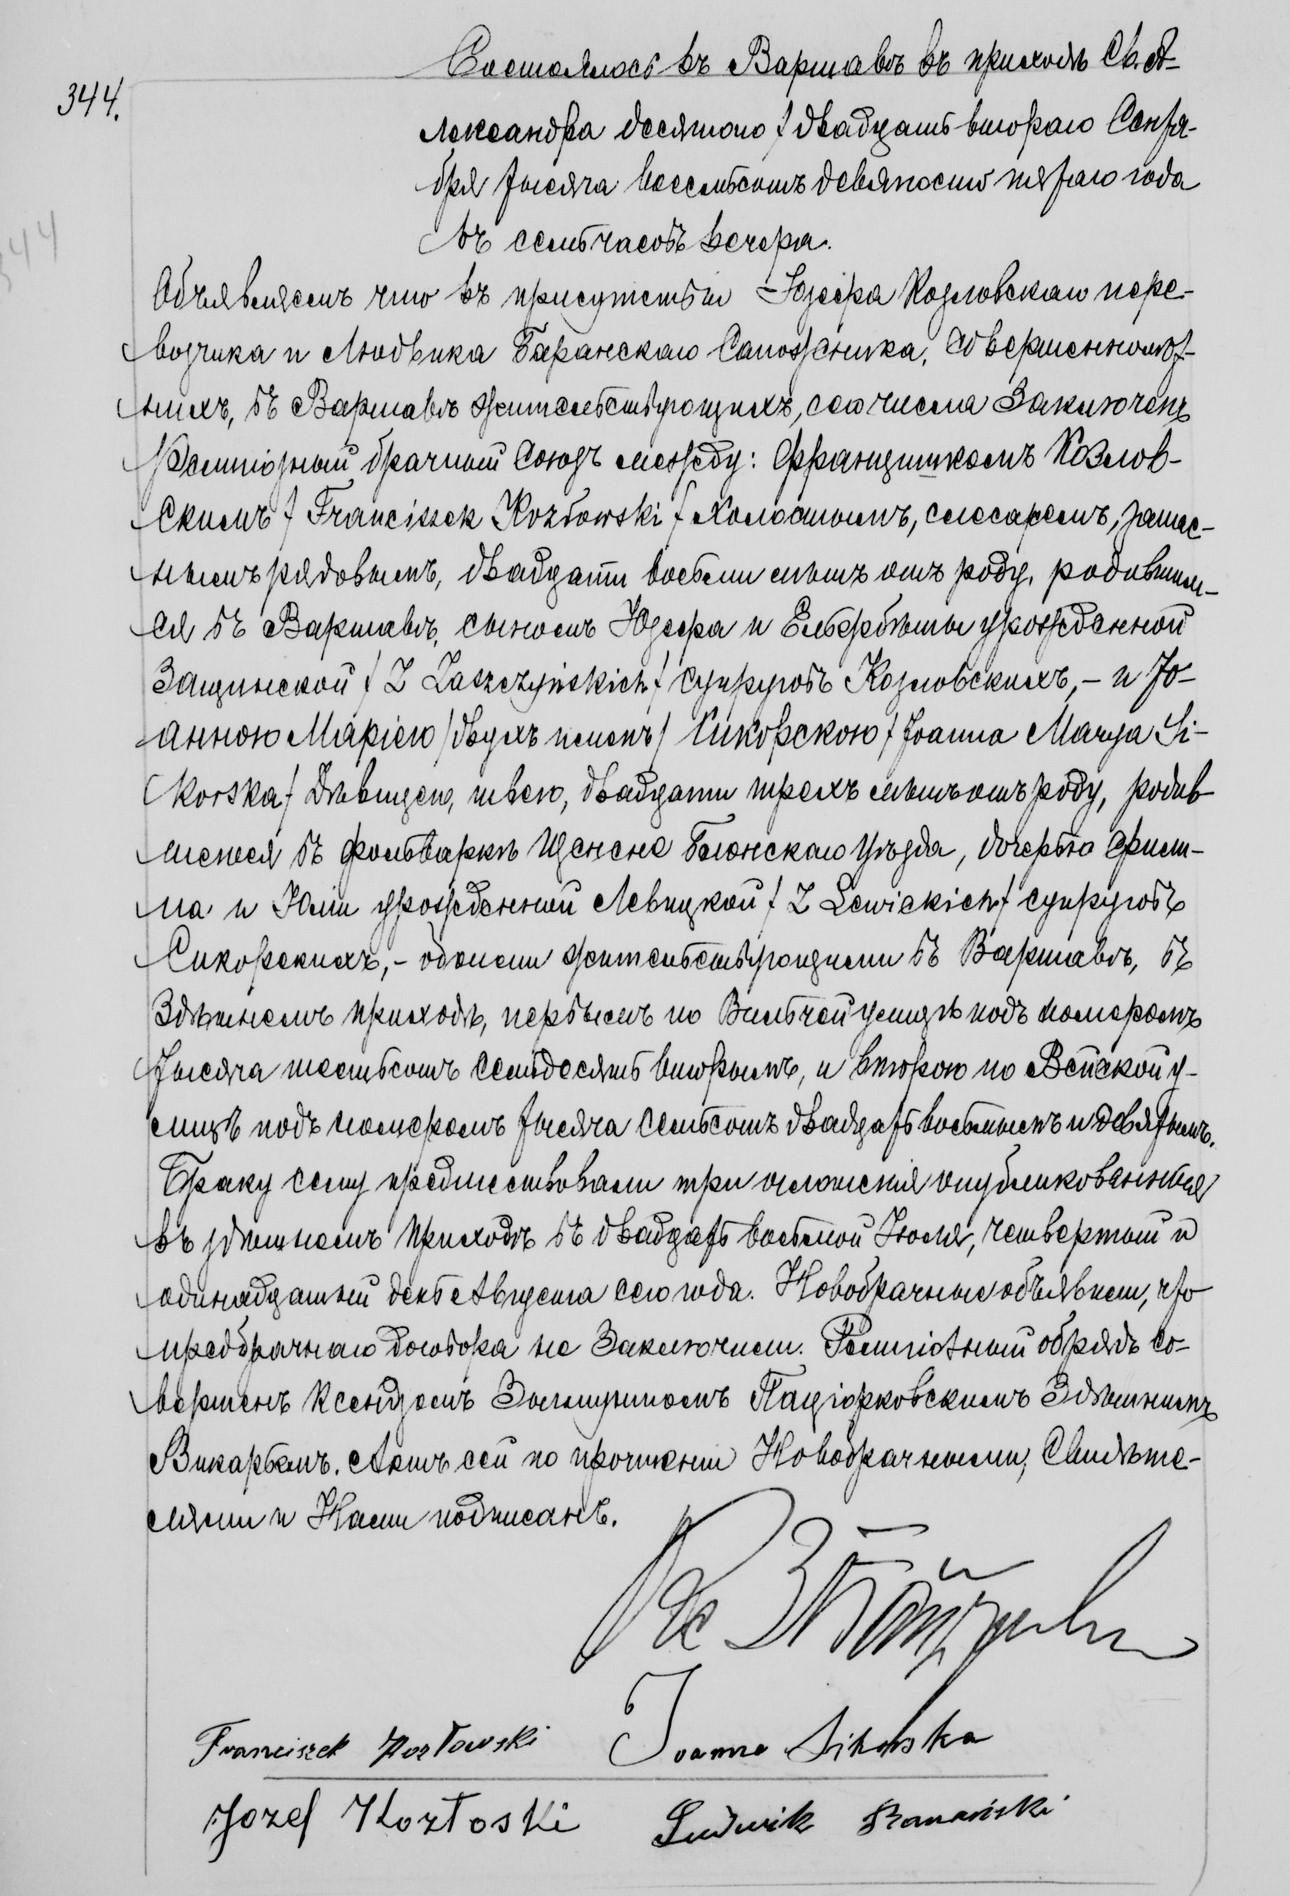 344.
Состоялось въ Варшавѣ въ приходѣ Св. А-
лександра десятого / двадцать втораго Сентя-
бря тысяча восемьсотъ девяносто пятаго года
въ семь часовъ вечера.
Объявляемъ что въ присутствіи Юзефа Козловскаго пере-
возчика и Людвика Баранскаго Сапожника, совершеннолѣт-
нихъ, въ Варшавѣ жительствующихъ, сего числа Заключенъ
Религіозный брачный Союзъ между: Францишкомъ Козлов-
скимъ / Franciszek Kozłowski / холостымъ, слесаремъ, запас-
нымъ рядовымъ, двадцати восьми лѣтъ отъ роду, родившим-
ся въ Варшавѣ, сыномъ Юзефа и Ельжбѣты урожденной
Защинской / Z Zaszczyńskich / супруговъ Козловскихъ, – и Іо-
анною Маріею / двухъ именъ / Сикорскою / Joanna Marya Si-
korska / Дѣвицею, швею, двадцати трехъ лѣтъ отъ роду, родив
шеюся въ фольваркѣ Щенсне Блонскаго Уѣзда, дочерью Фили-
па и Юліи урожденной Левицкой / Z Lewickich / супруговъ
Сикорскихъ, – обоими жительствующими въ Варшавѣ, въ
Здѣшнемъ приходѣ, первымъ по Вильчей улицѣ подъ номеромъ
тысяча шестьсотъ семьдесятъ вторымъ, и второю по Вейской у-
лицѣ подъ номеромъ тысяча семьсотъ двадцать восьмымъ и девятымъ.
Браку сему предшествовали три оглашенія опубликованныя
въ здѣшнемъ приходѣ въ двадцать восьмой Іюля, четвертый и
одинадцатый дни Августа сего года. Новобрачные объявили, что
предбрачнаго договора не Заключили. Религіозный обрядъ со-
вершенъ Ксендзомъ Зыгмунтомъ Паціорковскимъ Здѣшнимъ
Викаріемъ. Актъ сей по прочтеніи Новобрачными, Свидѣте-
лями и Нами подписанъ.
Кс
Franciszek Kozłowski Joanna Sikorska
Jozef Kozłoski Ludwik Baranński